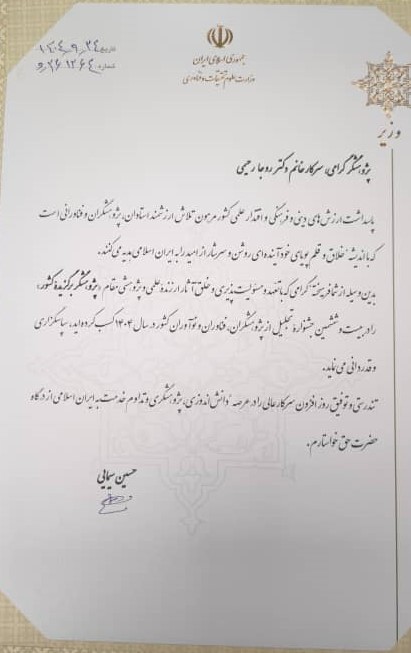 جمهوری اسلامی ایران
وزارت علوم، تحقیقات و فناوری
تاریخ: ۱۴۰۴/۹/۲۴
شماره: ۲۶۱۲۶۴/و
وزیر
پژوهشگر گرامی، سرکار خانم دکتر روجا رحیمی
پاسداشت ارزش‌های دینی و فرهنگی و اقتدار علمی کشور مرهون تلاش ارزشمند استادان، پژوهشگران و فناورانی است
که با اندیشهٔ خلاق و قلم پویای خود آینده‌ای روشن و سرشار از امید را به ایران اسلامی هدیه می‌کنند.
بدین وسیله از شما فرهیختهٔ گرامی که با تعهد و مسئولیت پذیری و خلق آثار ارزندهٔ علمی و پژوهشی مقام «پژوهشگر برگزیدهٔ کشور»
را در بیست و ششمین جشنوارهٔ تجلیل از پژوهشگران، فناوران و نوآوران کشور در سال ۱۴۰۴ کسب کرده‌اید، سپاسگزاری
و قدردانی می‌نماید.
تندرستی و توفیق روز افزون سرکار عالی را در عرصهٔ دانش‌اندوزی، پژوهشگری و تداوم خدمت به ایران اسلامی از درگاه
حضرت حق خواستارم.
حسین سیمایی